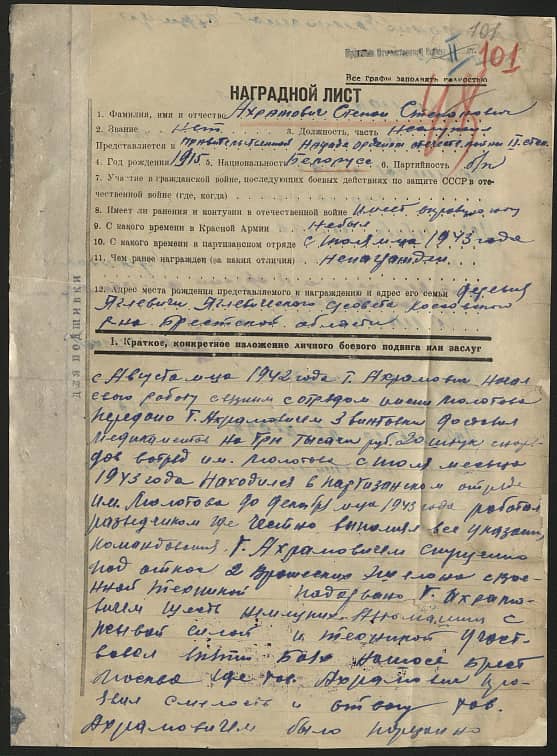 101
II ст.
101
Все графы заполнять полностью
НАГРАДНОЙ ЛИСТ
1. Фамилия, имя и отчество Ахрамович Степан Степанович
2. Звание нет 3. Должность, часть
Представляется к правительственной награде орденом отечественной войны II степ.
4. Год рождения 1915 5. Национальность Белорусс 6. Партийность б/п
7. Участие в гражданской войне, последующих боевых действиях по защите СССР и оте-
чественной войне (где, когда)
8. Имеет ли ранения и контузии в отечественной войне имеет
9. С какого времени в Красной Армии не был
10. С какого времени в партизанском отряде с июля м-ца 1943 года
11. Чем ранее награжден (за какие отличия) ненагражден
12. Адрес места рождения представляемого к награждению и адрес его семьи деревня
Аглевичи Аглевического с/совета Коссовского
р-на Брестской области
для подшивки
1. Краткое, конкретное изложение личного боевого подвига или заслуг
с Августа м-ца 1942 года т. Ахрамович начал
свою работу с отрядом имени Молотова
передано т. Ахрамовичем 3 винтовки доставил
медикаментов на три тысячи руб. 20 штук
в отряд им. Молотова с июля месяца
1943 года находился в партизанском отряде
им. Молотова до декабря м-ца 1943 года работал
разведчиком где честно выполнял все указания
командования т. Ахрамовичем спущено
под откос 2 вражеских эшелона с вое-
нной техникой подорвано т. Ахрамо-
вичем шесть немецких Автомашин с
живой силой и техникой участ-
вовал на шоссе Брест
Москва где тов. Ахрамович про-
явил смелость и отвагу тов.
Ахрамовичем было